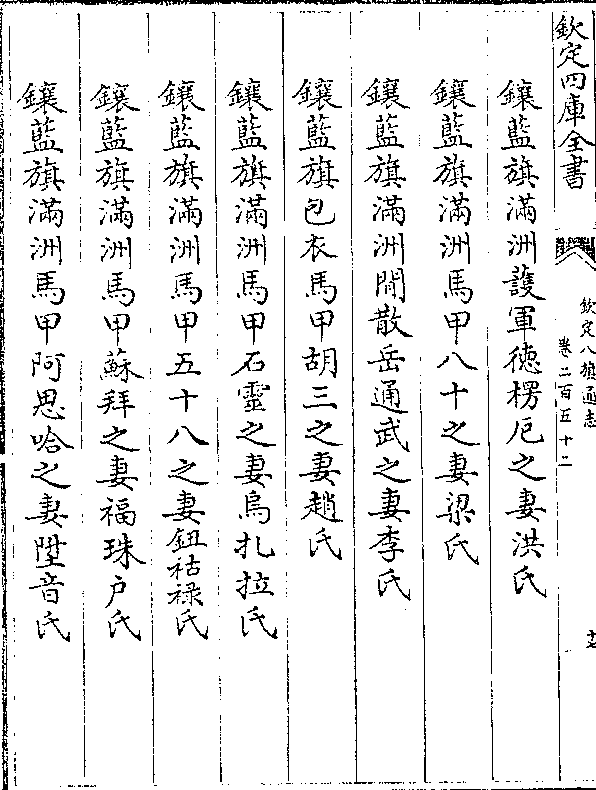 欽定四庫全書
欽定八旗通志
卷二百五十二
鑲藍旗滿洲護軍德楞厄之妻洪氏
鑲藍旗滿洲馬甲八十之妻梁氏
鑲藍旗滿洲閒散岳通武之妻李氏
鑲藍旗包衣馬甲胡三之妻趙氏
鑲藍旗滿洲馬甲石靈之妻烏扎拉氏
鑲藍旗滿洲馬甲五十八之妻鈕祜禄氏
鑲藍旗滿洲馬甲蘇拜之妻福珠户氏
鑲藍旗滿洲馬甲阿思哈之妻陞音氏